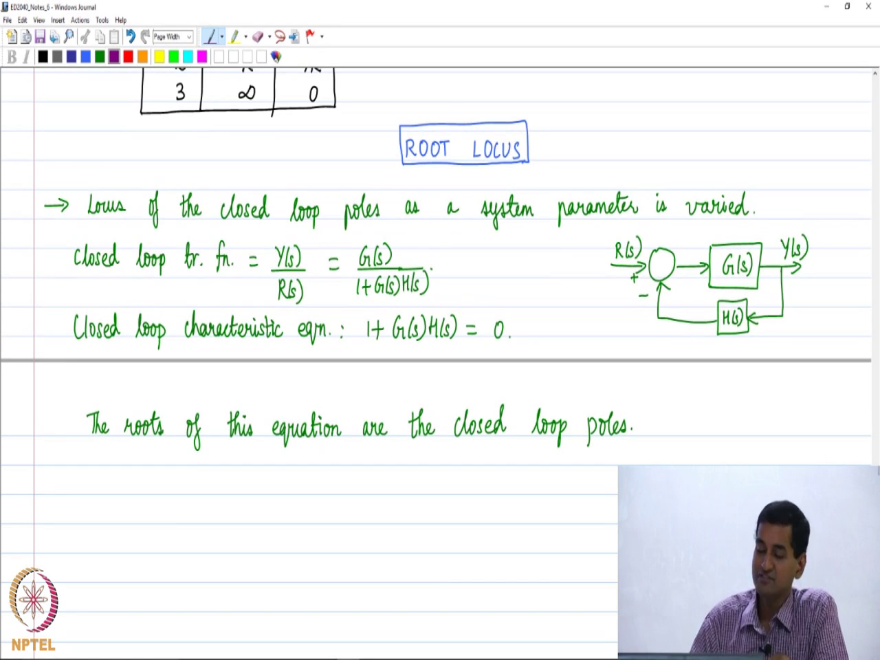 ED2040_Notes_6 - Windows Journal
File Edit View Insert Actions Tools Help
Page Width
B I
3 ∞ 0
ROOT LOCUS
→ Locus of the closed loop poles as a system parameter is varied.
Closed loop tr. fn. = Y(s)/R(s) = G(s)/(1+G(s)H(s)).
R(s) + − G(s) Y(s)
H(s)
Closed loop characteristic eqn.: 1+ G(s)H(s) = 0.
The roots of this equation are the closed loop poles.
NPTEL